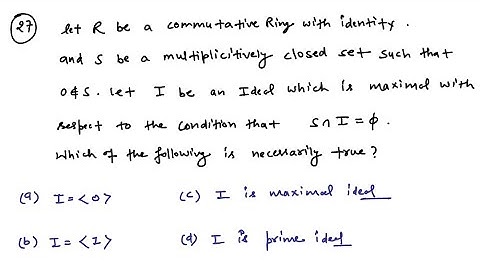 27 let R be a commutative Ring with identity.
and S be a multiplicitively closed set such that
0∉S. Let I be an Ideal which is maximal with
respect to the condition that S∩I=ϕ.
Which of the following is necessarily true?
(a) I=<0> (c) I is maximal ideal
(b) I=<I> (d) I is prime ideal